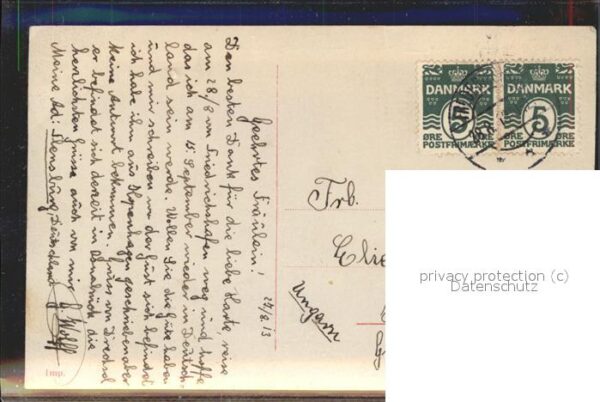 Geehrtes Fräulein!
27/8.13
Den besten Dank für die liebe Karte, reise
am 28/8 von Friedrichshafen weg und hoffe
das ich am 15 September wieder in Deutsch-
land sein werde. Wollen Sie die Güte haben
und mir schreiben wo der Gust sich befindet
ich habe ihm aus Kopenhagen geschrieben aber
keine Antwort bekommen. Gruss von Drechsel
er befindet sich derzeit in Osnabrück, die
herzlichsten Grüsse auch von mir
Meine Ad: Flensburg, Deutschland
J. Wolff
Imp.
DANMARK
5
ØRE
POSTFRIMÆRKE
DANMARK
5
ØRE
POSTFRIMÆRKE
Frb.
Ungarn
privacy protection (c)
Datenschutz